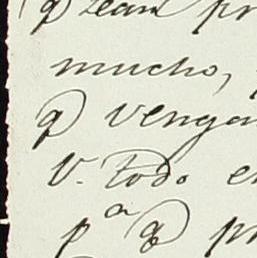 q̃ sean pr
mucho,
q̃ venga
V. todo e
pª q̃ p